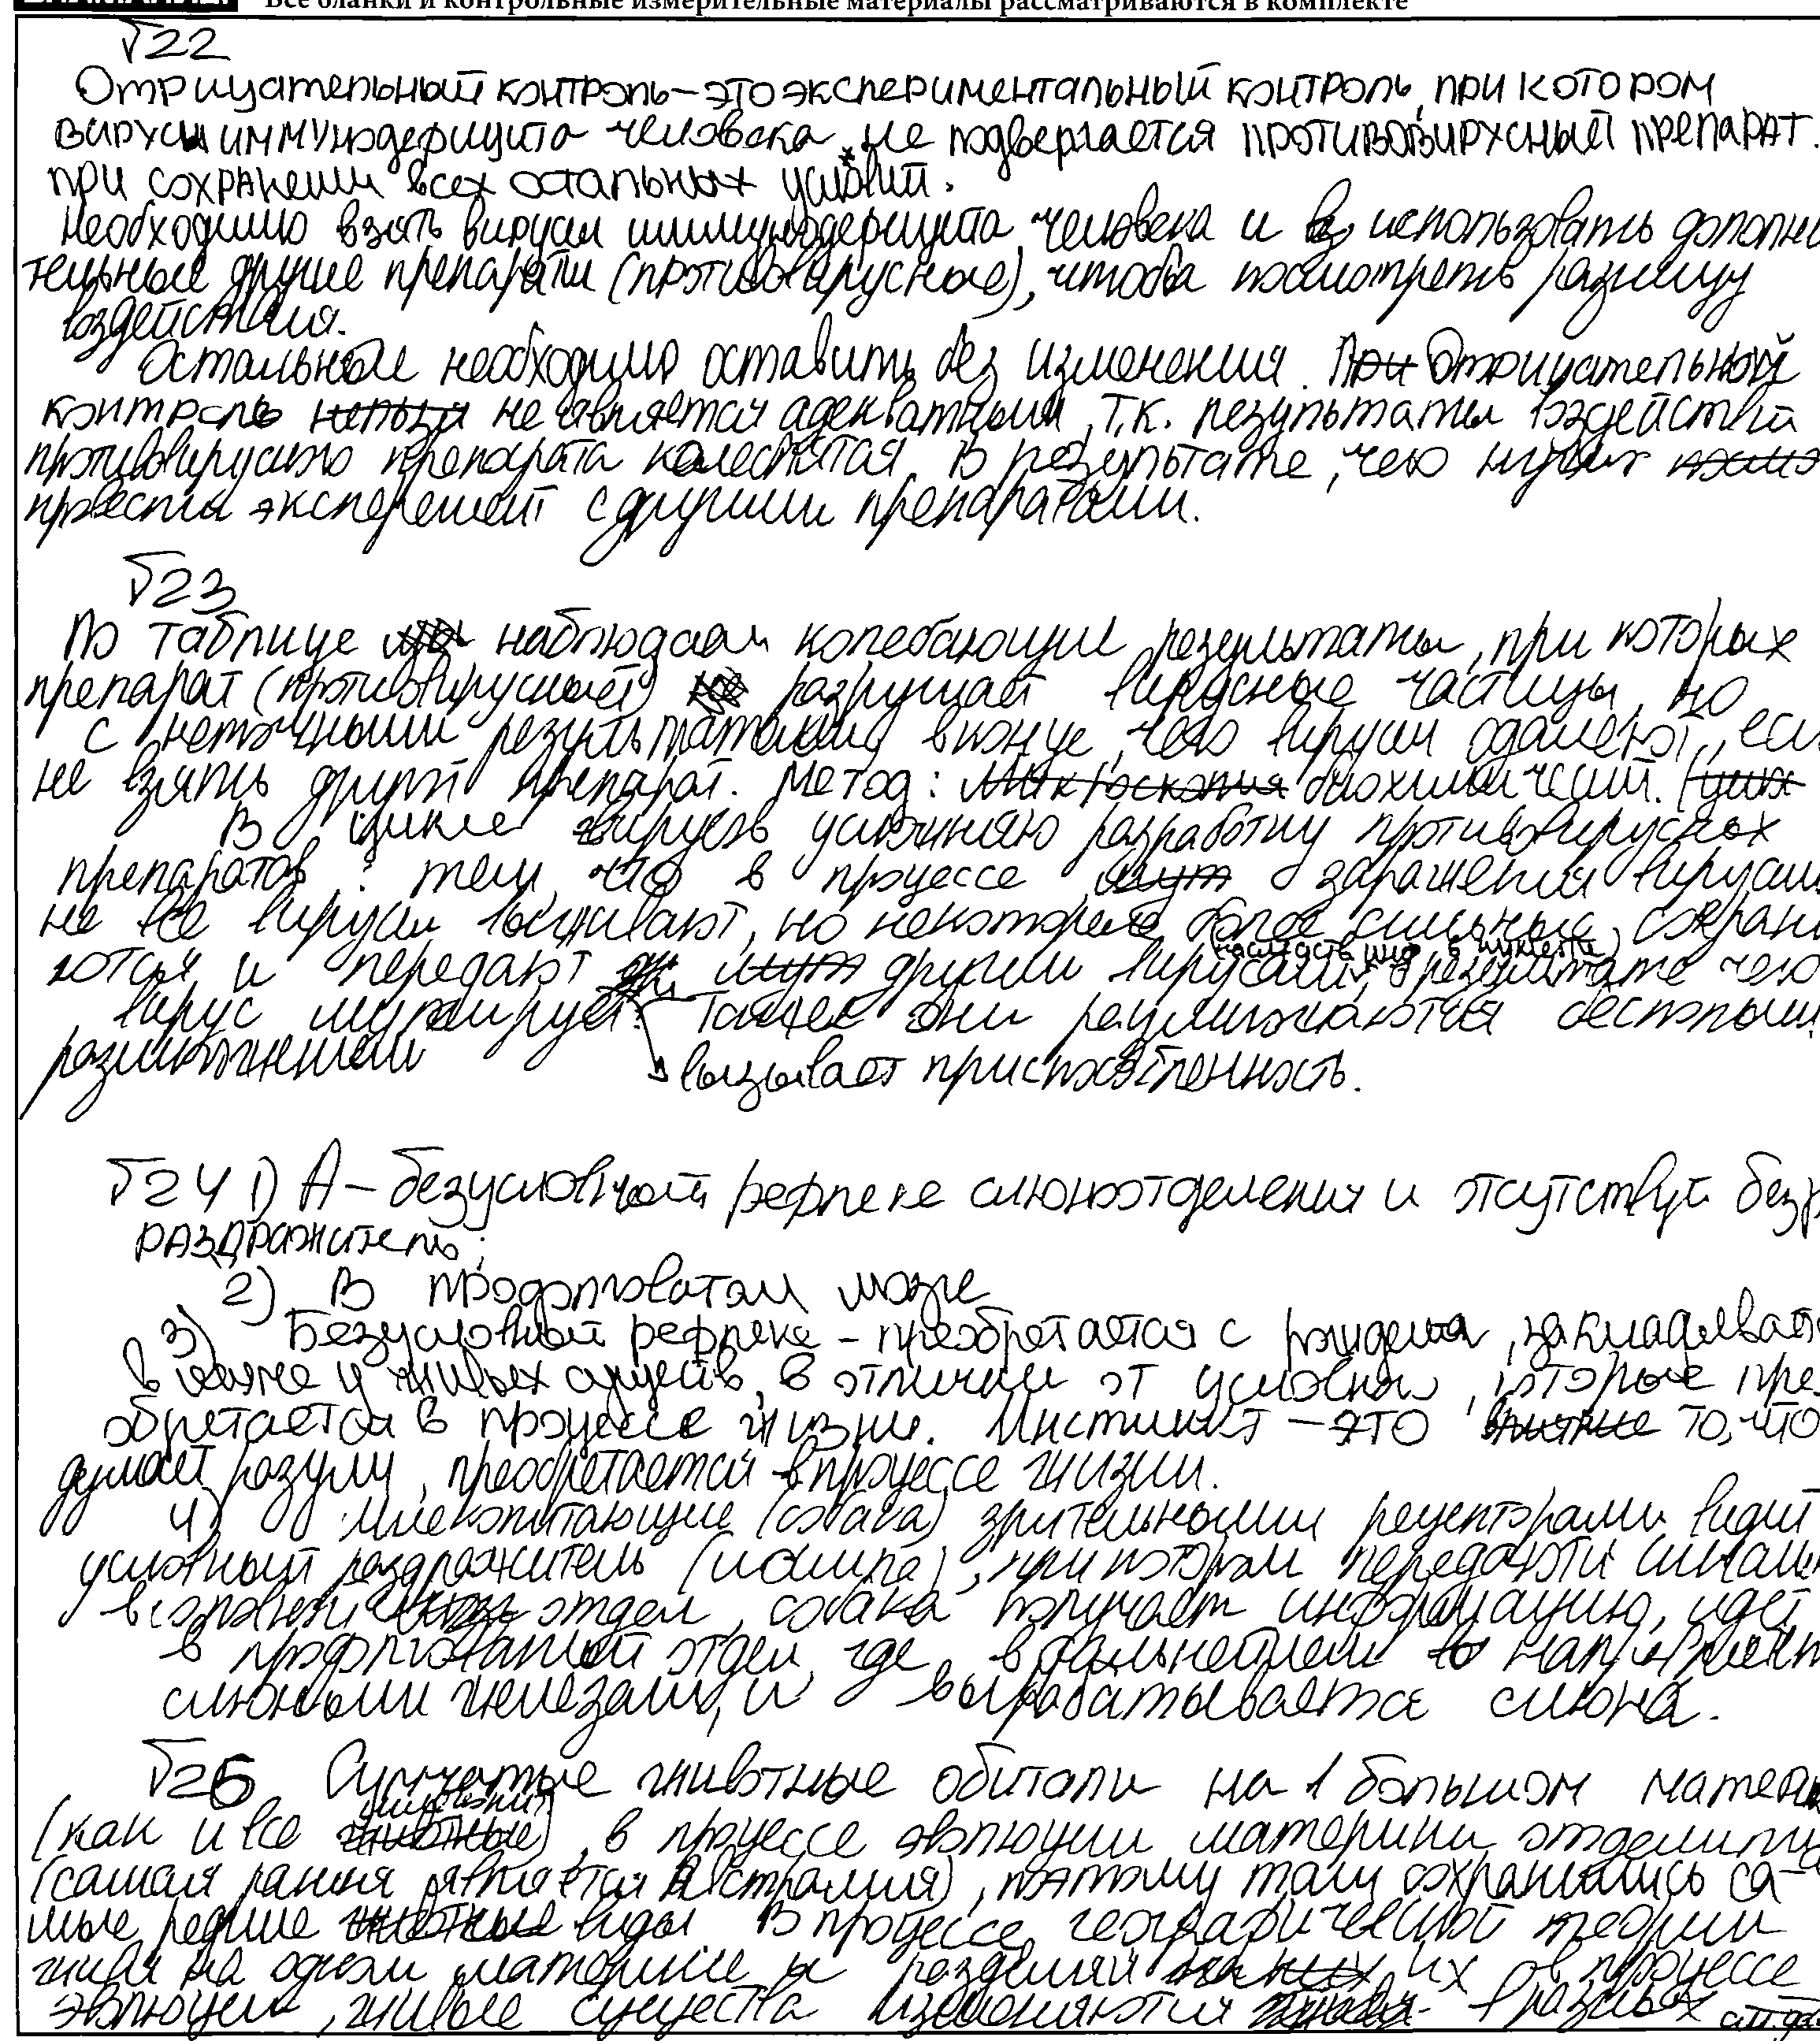 Все бланки и контрольные измерительные материалы рассматриваются в комплекте
√22
Отрицательный контроль – это экспериментальный контроль, при котором
вирусы иммунодефицита человека не подвергается противовирусный препарат.
при сохранении всех остальных условий.
Необходимо взять вирусы иммунодефицита человека и использовать дополни
тельные другие препараты (противовирусные), чтобы посмотреть разницу
воздействия.
Остальные необходимо оставить без изменения. Отрицательный
контроль не является адекватным, т.к. результаты воздействий
противовирусного препарата колеблятся. В результате, чего нужно
провести эксперемент с другими препаратами.
√23
По таблице наблюдаем колебающие результаты, при которых
препарат (противовирусный) разрушает вирусные частицы, но
с неточными результатами, в конце, чего вирусы одалеют, есл
не взять другой препарат. Метод: биохимический.
В цикле вирусов усложняю разработку противовирусных
препаратов: тем, что в процессе заражения вирусами
не все вирусы выживают, но некоторые более сильные, сохран
ются и передают другим вирусам, в результате чего
вирус мутирует. Также они размножаются бесполым
размножением
вызывает приспособленность.
√24 1) А – безусловный рефлекс слюноотделения и отсутствует безу
раздражитель;
2) В продолговатом мозге
3) Безусловный рефлекс – преобретается с рождения, закладывает
у живых существ, в отличии от условных, которые пре
обретается в процессе жизни. Инстинкт – это то, что
думает разум, преобретается в процессе жизни.
4) Млекопитающие (собака) зрительными рецепторами видит
условный раздражитель (лампа), при котором передаются сигналы
в отдел, собака получает информацию, идёт
в продолговатый отдел, где в дальнейшем
слюными железами, и вырабатывается слюна.
√25 Сумчатые животные обитали на 1 большом матери
(как и все), в процессе эволюции материки отделились
(самая ранняя является Австралия), поэтому там сохранились са-
мые редкие виды. В процессе географической теории
живя на одном материке и разделяя их в процессе
эволюции, живые существа изменяются в разных